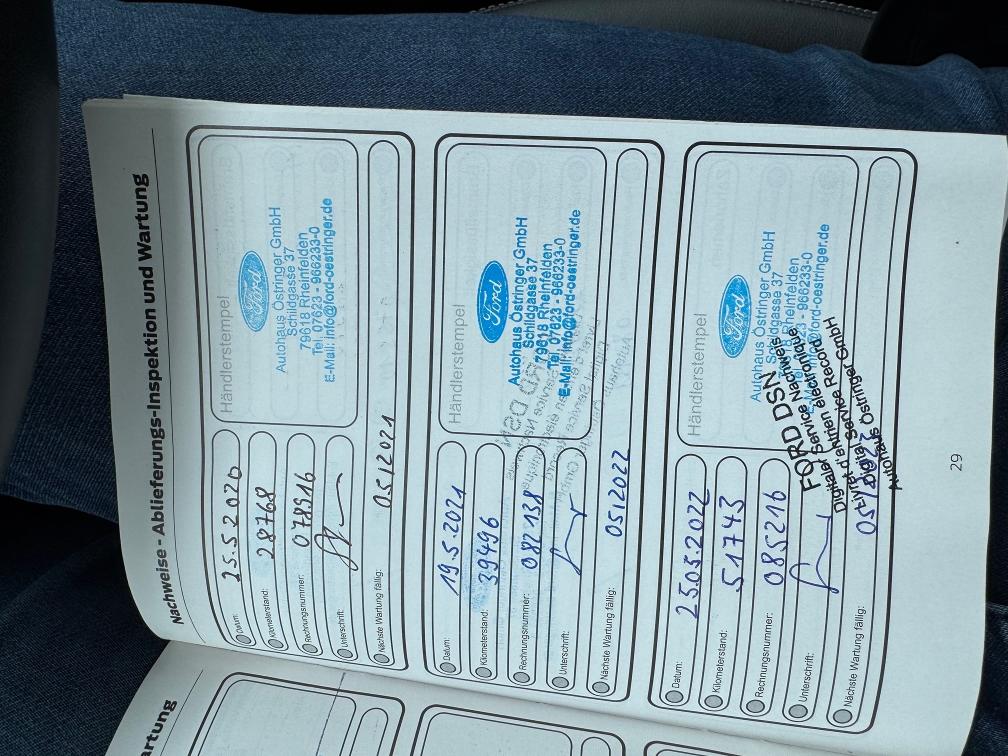 Nachweise - Ablieferungs-Inspektion und Wartung
Datum: 25.5.2020
Kilometerstand: 28768
Rechnungsnummer: 078916
Unterschrift:
Nächste Wartung fällig: 05/2021
Händlerstempel
Ford
Autohaus Östringer GmbH
Schildgasse 37
79618 Rheinfelden
Tel. 07623 - 966233-0
E-Mail: info@ford-oestringer.de
Datum: 19.5.2021
Kilometerstand: 39496
Rechnungsnummer: 082138
Unterschrift:
Nächste Wartung fällig: 05/2022
Händlerstempel
Ford
Autohaus Östringer GmbH
Schildgasse 37
79618 Rheinfelden
Tel. 07623 - 966233-0
E-Mail: info@ford-oestringer.de
Datum: 25.05.2022
Kilometerstand: 51743
Rechnungsnummer: 085216
Unterschrift:
Nächste Wartung fällig: 05/2023
Händlerstempel
Ford
Autohaus Östringer GmbH
Schildgasse 37
Rheinfelden
- 966233-0
@ford-oestringer.de
FORD DSN
Digitaler Service Nachweis
Livret d'entretien électronique
Digital Service Record
Autohaus Östringer GmbH
29
artung